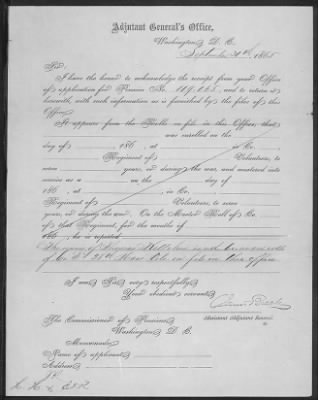 Adjutant General's Office,
Washington, D. C.
September 30th, 1865
Sir:
I have the honor to acknowledge the receipt from your Office
of application for Pension No. 119.663, and to return it
herewith, with such information as is furnished by the files of this
Office.
It appears from the Rolls on file in this Office, that
was enrolled on the
day of , 186 , at , in Co.
Regiment of Volunteers, to
serve years, or during the war, and mustered into
service as a on the day of
186 , at , in Co.
Regiment of Volunteers, to serve
years, or during the war. On the Muster Roll of Co.
of that Regiment, for the months of
186 , he is reported
The name of
of Co. 21st Mass. Vols. on file in this Office
I am, Sir, very respectfully,
Your obedient servant,
Assistant Adjutant General.
The Commissioner of Pensions,
Washington, D. C.
Memoranda:
Name of applicant,
Address,